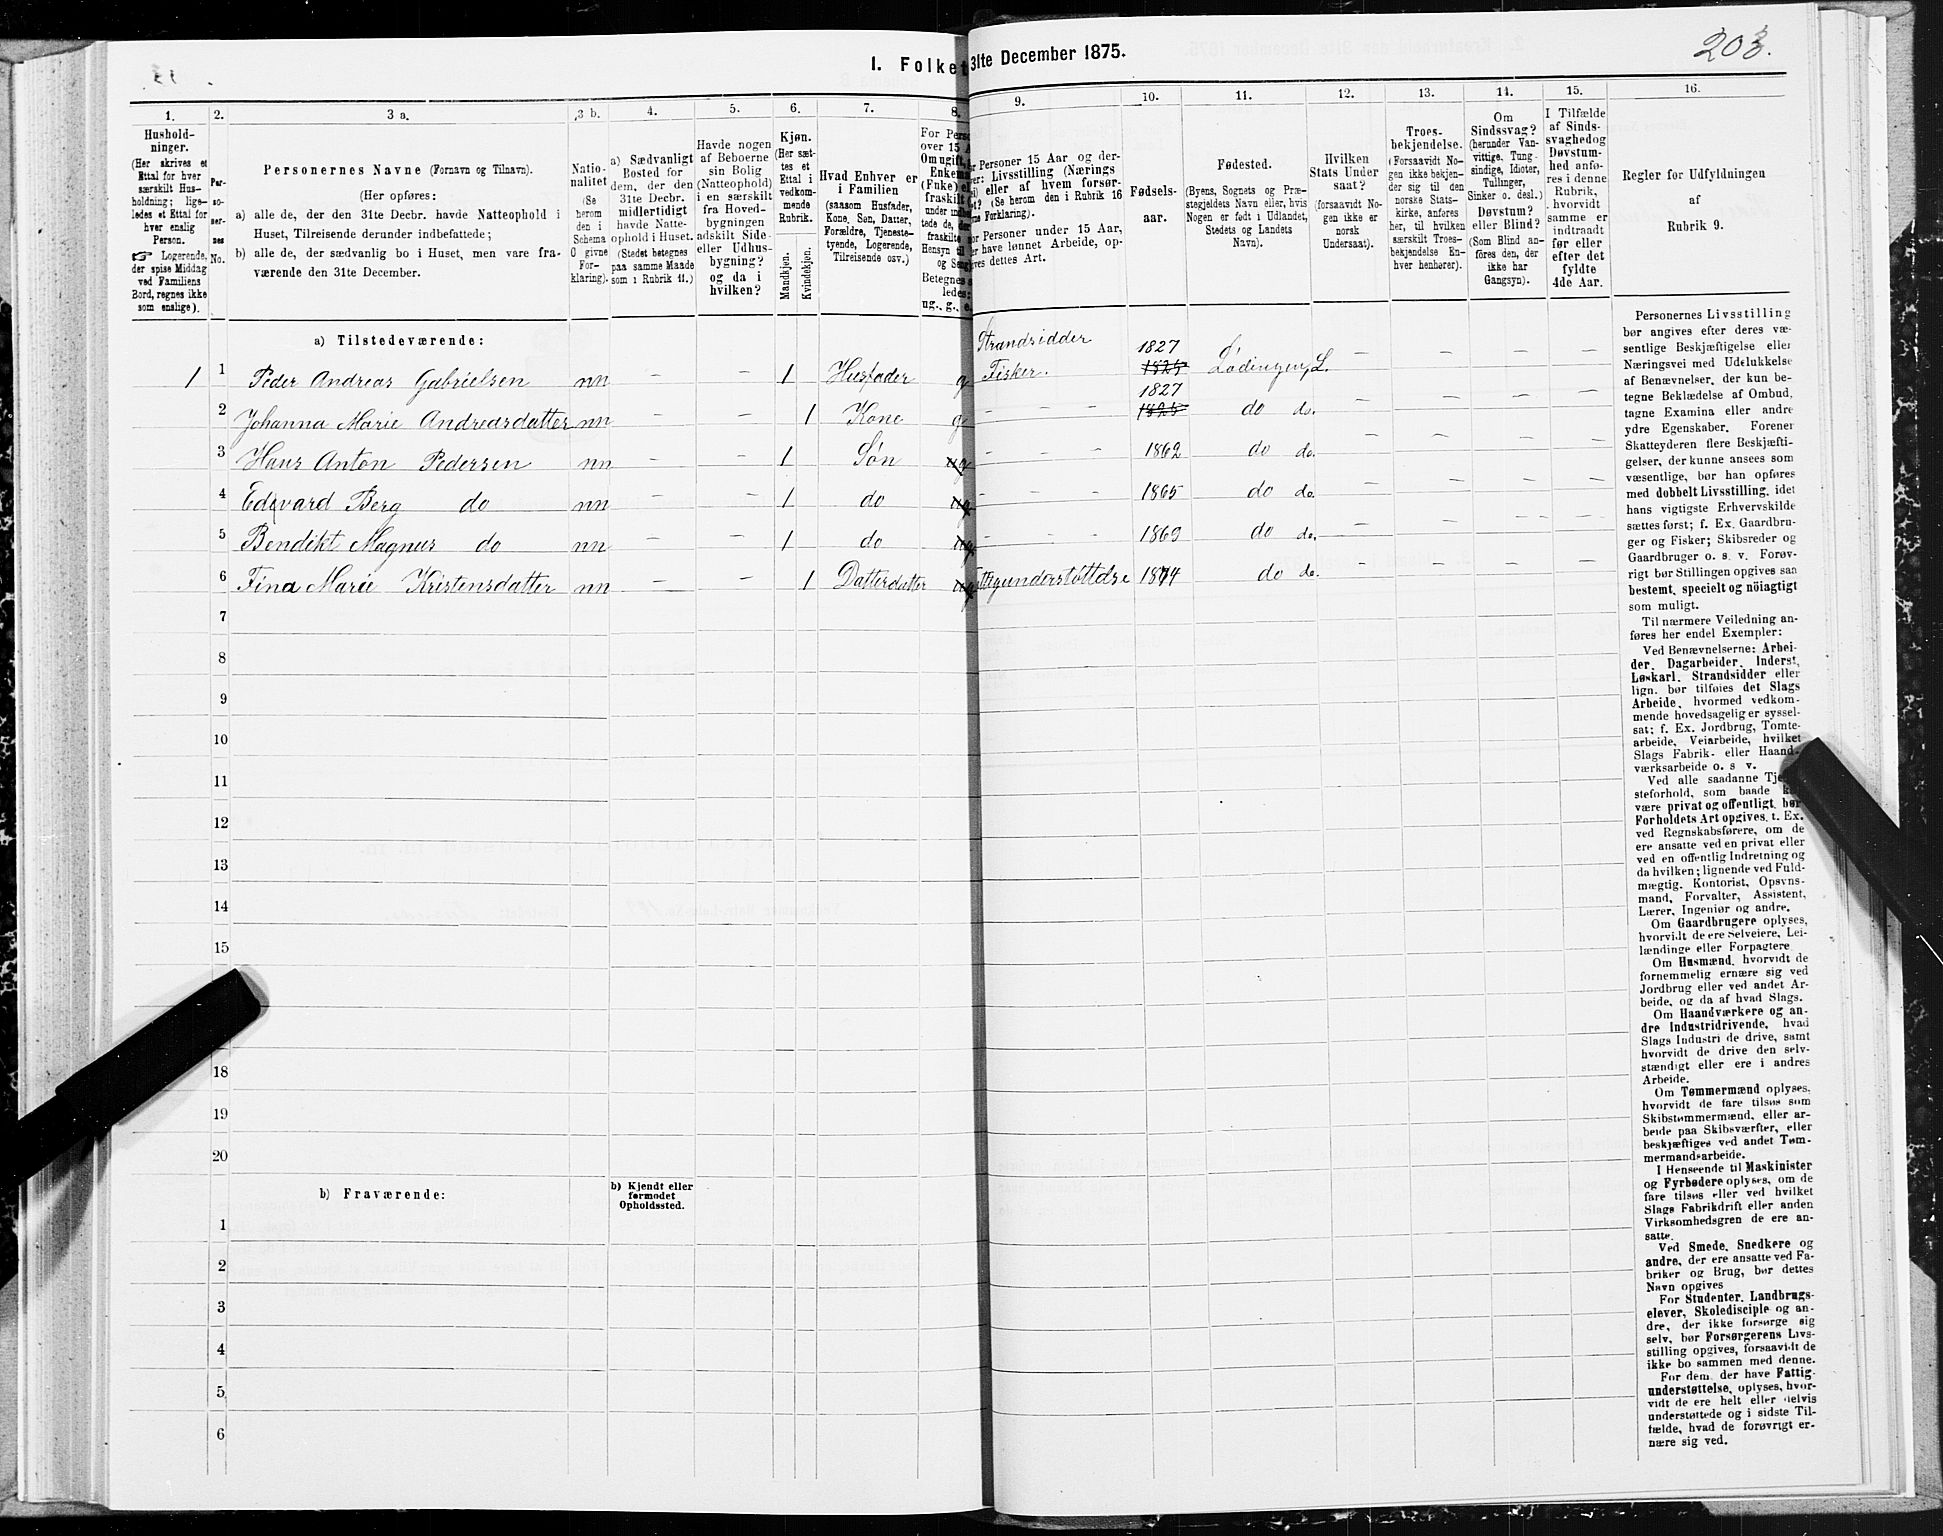 I. Folket 31te December 1875.
203.
1.
Hushold-
ninger.
(Her skrives et
Ettal for hver
særskilt Hus-
holdning; lige-
ledes et Ettal for
hver enslig
Person.
☞ Logerende,
der spise Middag
ved Familiens
Bord, regnes ikke
som enslige).
2.
Per-
so-
ner-
nes
No.
3 a.
Personernes Navne (Fornavn og Tilnavn).
(Her opføres:
a) alle de, der den 31te Decbr. havde Natteophold i
Huset, Tilreisende derunder indbefattede;
b) alle de, der sædvanlig bo i Huset, men vare fra-
værende den 31te December.
3 b.
Natio-
nalitet
(Se
herom
den i
Schema
0 givne
For-
klaring).
4.
a) Sædvanligt
Bosted for
dem, der den
31te Decbr.
midlertidigt
havde Natte-
ophold i Huset.
(Stedet betegnes
paa samme Maade
som i Rubrik 11.)
5.
Havde nogen
af Beboerne
sin Bolig
(Natteophold)
i en særskilt
fra Hoved-
bygningen
adskilt Side-
eller Udhus-
bygning?
og da i
hvilken?
6.
Kjøn.
(Her sæt-
tes et
Ettal i
vedkom-
mende
Rubrik.
Mandkjøn.
Kvindekjøn.
7.
Hvad Enhver er
i Familien
(saasom Husfader,
Kone, Søn, Datter,
Forældre, Tjeneste-
tyende, Logerende,
Tilreisende osv.)
8.
For Perso
over 15 A
Om ugift,
Enkem
(Fuke) e
fraskilt
under indb
tede de, de
fraskilte
Hensyn til
og Seng
Betegnes s
ledes:
ug., g., e.
9.
Personer 15 Aar og der-
over: Livsstilling (Nærings
eller af hvem forsør-
get? (Se herom den i Rubrik 16
Forklaring).
Personer under 15 Aar,
have lønnet Arbeide, op-
gives dettes Art.
10.
Fødsels-
aar.
11.
Fødested.
(Byens, Sognets og Præ-
stegjeldets Navn eller, hvis
Nogen er født i Udlandet,
Stedets og Landets
Navn).
12.
Hvilken
Stats Under
saat?
(forsaavidt No-
gen ikke er
norsk
Undersaat).
13.
Troes-
bekjendelse.
(Forsaavidt No-
gen ikke bekjen-
der sig til den
norske Stats-
kirke, anføres
her, til hvilken
særskilt Troes-
bekjendelse En-
hver henhører).
14.
Om
Sindssvag?
(herunder Van-
vittige, Tung-
sindige, Idioter,
Tullinger,
Sinker o. desl.)
Døvstum?
eller Blind?
(Som Blind an-
føres den, der
ikke har
Gangsyn).
15.
I Tilfælde
af Sinds-
svaghed og
Døvstum-
hed anfø-
res i denne
Rubrik,
hvorvidt
samme er
indtraadt
før eller
efter det
fyldte
4de Aar.
16.
Regler for Udfyldningen
af
Rubrik 9.
a) Tilstedeværende:
1 1 Peder Andreas Gabrielsen nn – – 1 Husfader g Strandsidder Fisker. 1827 1825 Lødingen, L. – – – –
2 Johanna Marie Andreasdatter nn – – 1 Kone g – – – 1827 1825 do do. – – – –
3 Hans Anton Pedersen nn – – 1 Søn ug – – – 1862 do do. – – – –
4 Edevard Berg do nn – – 1 do ug – – – 1865 do do. – – – –
5 Bendikt Magnus do nn – – 1 do ug – – – 1869 do do. – – – –
6 Fina Marie Kristensdatter nn – – 1 Datterdatter ug Fattigunderstøttelse 1874 do do. – – – –
7
8
9
10
11
12
13
14
15
18
19
20
b) Fraværende:
b) Kjendt eller
formodet
Opholdssted.
1
2
3
4
5
6
Personernes Livsstilling
bør angives efter deres væ-
sentlige Beskjæftigelse eller
Næringsvei med Udelukkelse
af Benævnelser, der kun be-
tegne Beklædelse af Ombud,
tagne Examina eller andre
ydre Egenskaber. Forener
Skatteyderen flere Beskjæfti-
gelser, der kunne ansees som
væsentlige, bør han opføres
med dobbelt Livsstilling, idet
hans vigtigste Erhvervskilde
sættes først; f. Ex. Gaardbru-
ger og Fisker; Skibsreder og
Gaardbruger o. s. v. Forøv-
rigt bør Stillingen opgives saa
bestemt, specielt og nöiagtigt
som muligt.
Til nærmere Veiledning an-
føres her endel Exempler:
Ved Benævnelserne: Arbei-
der, Dagarbeider, Inderst,
Løskarl, Strandsidder eller
lign. bør tilføies det Slags
Arbeide, hvormed vedkom-
mende hovedsagelig er syssel-
sat; f. Ex. Jordbrug, Tomte-
arbeide, Veiarbeide, hvilket
Slags Fabrik- eller Haand-
værksarbeide o. s v.
Ved alle saadanne Tje
steforhold, som baade k
være privat og offentligt, bør
Forholdets Art opgives, t. Ex.
ved Regnskabsførere, om de
ere ansatte ved en privat eller
ved en offentlig Indretning og
da hvilken; lignende ved Fuld-
mægtig, Kontorist, Opsyns-
mand, Forvalter, Assistent,
Lærer, Ingeniør og andre.
Om Gaardbrugere oplyses,
hvorvidt de ere Selveiere, Lei-
lændinge eller Forpagtere
Om Husmænd, hvorvidt de
fornemmelig ernære sig ved
Jordbrug eller ved andet Ar-
beide, og da af hvad Slags.
Om Haandværkere og an-
dre Industridrivende, hvad
Slags Industri de drive, samt
hvorvidt de drive den selv-
stændigt eller ere i andres
Arbeide.
Om Tømmermænd oplyses,
hvorvidt de fare tilsøs som
Skibstømmermænd, eller ar-
beide paa Skibsværfter, eller
beskjæftiges ved andet Tøm-
mermandsarbeide.
I Henseende til Maskinister
og Fyrbødere oplyses, om de
fare tilsøs eller ved hvilket
Slags Fabrikdrift eller anden
Virksomhedsgren de ere an-
satte.
Ved Smede, Snedkere og
andre, der ere ansatte ved Fa-
briker og Brug, bør dettes
Navn opgives
For Studenter, Landbrugs-
elever, Skoledisciple og an-
dre, der ikke forsørge sig
selv, bør Forsørgerens Livs-
stilling opgives, forsaavidt de
ikke bo sammen med denne.
For dem, der have Fattig-
understøttelse, oplyses, hvor-
vidt de ere helt eller delvis
understøttede og i sidste Til-
fælde, hvad de forøvrigt er-
nære sig ved.